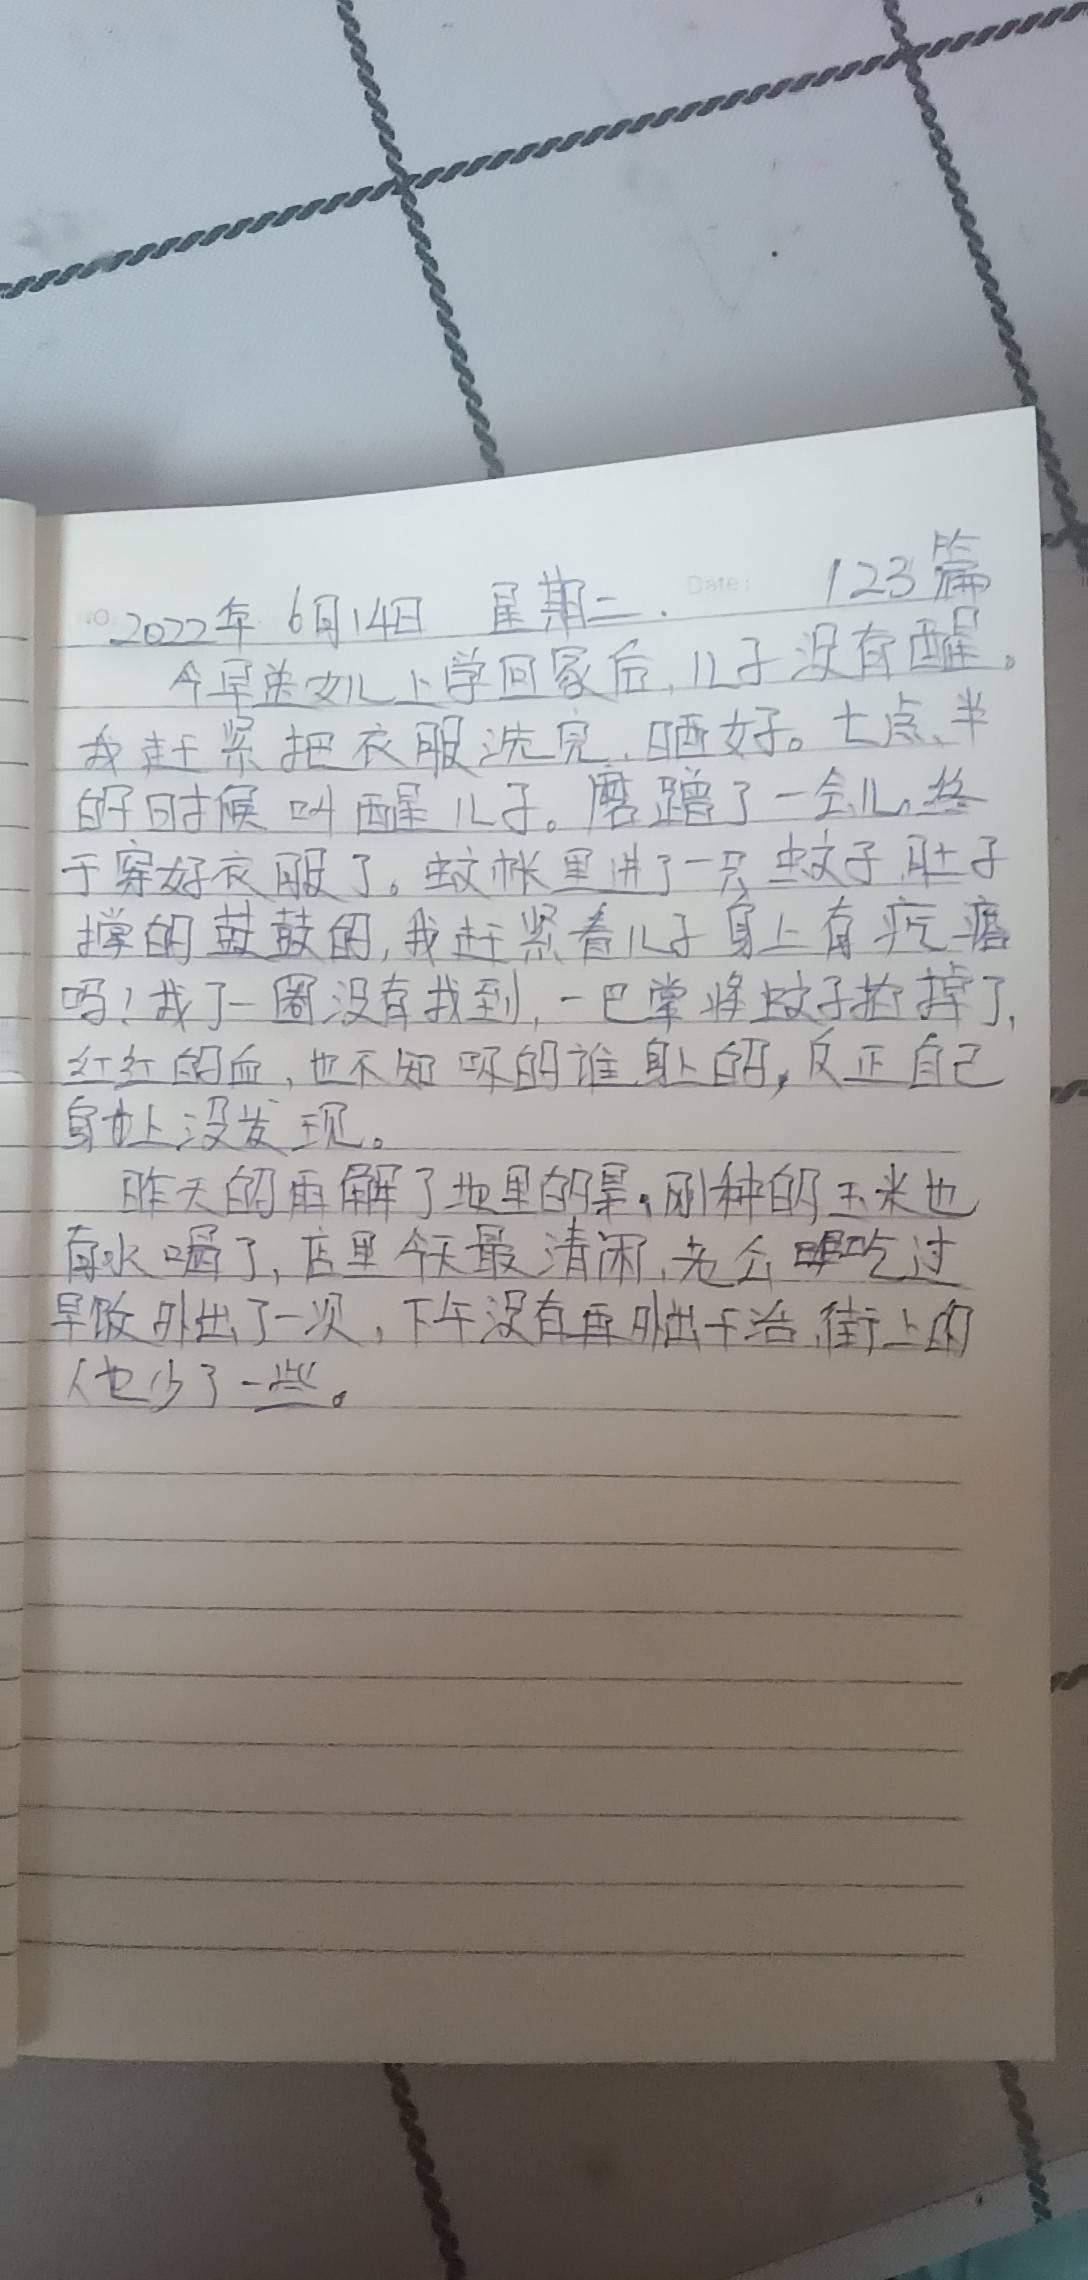 NO. 2022年 6月14日 星期二. Date: 123篇
今早送女儿上学回家后,儿子没有醒。
我赶紧把衣服洗完、晒好。七点半
的时候叫醒儿子。磨蹭了一会儿,终
于穿好衣服了。蚊帐里进了一只蚊子,肚子
撑的鼓鼓的,我赶紧看儿子身上有疙瘩
吗!找了一圈没有找到,一巴掌将蚊子拍掉了,
红红的血,也不知呀的谁身上的,反正自己
身上没发现。
昨天的雨解了地里的旱,刚种的玉米也
有水喝了,店里今天最清闲,老公吃过
早饭外出了一次,下午没有再外出干活,街上的
人也少了一些。